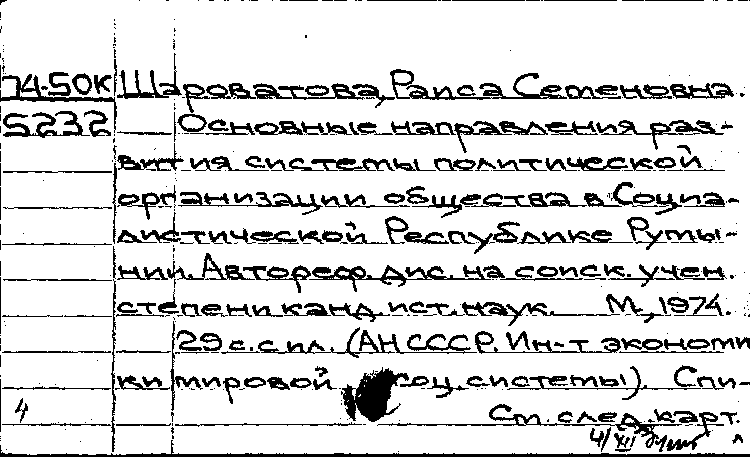 74-50К Шароватова, Раиса Семеновна.
5232 Основные направления раз-
вития системы политической
организации общества в Социа-
листической Республике Румы-
нии. Автореф. дис. на соиск. учен.
степени канд. ист. наук. М., 1974.
29 с. с ил. (АН СССР. Ин-т экономи
ки мировой соц. системы). Спи-
4 См. след. карт.
4/XII